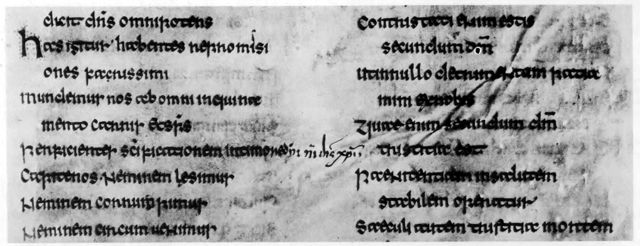 dicit dn̄s omnipotens
Has igitur habentes repromisi
ones karissimi
mundemur nos ab omni inquina
mento carnis et sp̄s
Perficientes sc̄ificationem in timore
Capite nos Neminem lesimus
Neminem corrupimus
Neminem circumuenimus
Contristati enim estis
secundum dm̄
ut in nullo detrimentum patia
mini ex nobis
Quae enim secundum dm̄
tristitia est
Paenitentiam in salutem
stabilem operatur
Saeculi autem tristitia mortem